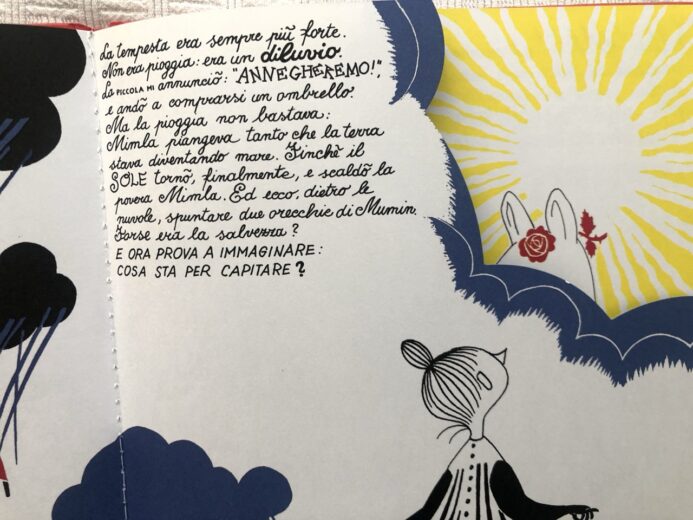 La tempesta era sempre più forte.
Non era pioggia: era un diluvio.
La PICCOLA MI annunciò: "ANNEGHEREMO!",
e andò a comprarsi un ombrello.
Ma la pioggia non bastava:
Mimla piangeva tanto che la terra
stava diventando mare. Finchè il
SOLE tornò, finalmente, e scaldò la
povera Mimla. Ed ecco, dietro le
nuvole, spuntare due orecchie di Mumin.
Forse era la salvezza?
E ORA PROVA A IMMAGINARE:
COSA STA PER CAPITARE?